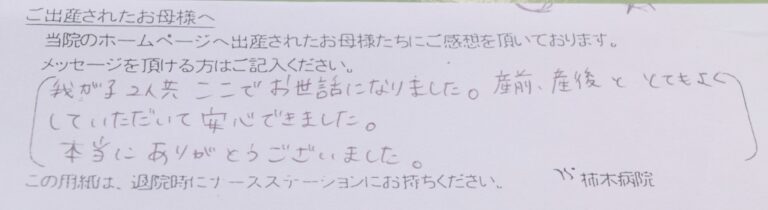 ご出産されたお母様へ
当院のホームページへ出産されたお母様たちにご感想を頂いております。
メッセージを頂ける方はご記入ください。
我が子2人共 ここで お世話になりました。産前、産後と とてもよく
していただいて 安心できました。
本当に ありがとうございました。
この用紙は、退院時にナースステーションにお持ちください。 柿木病院